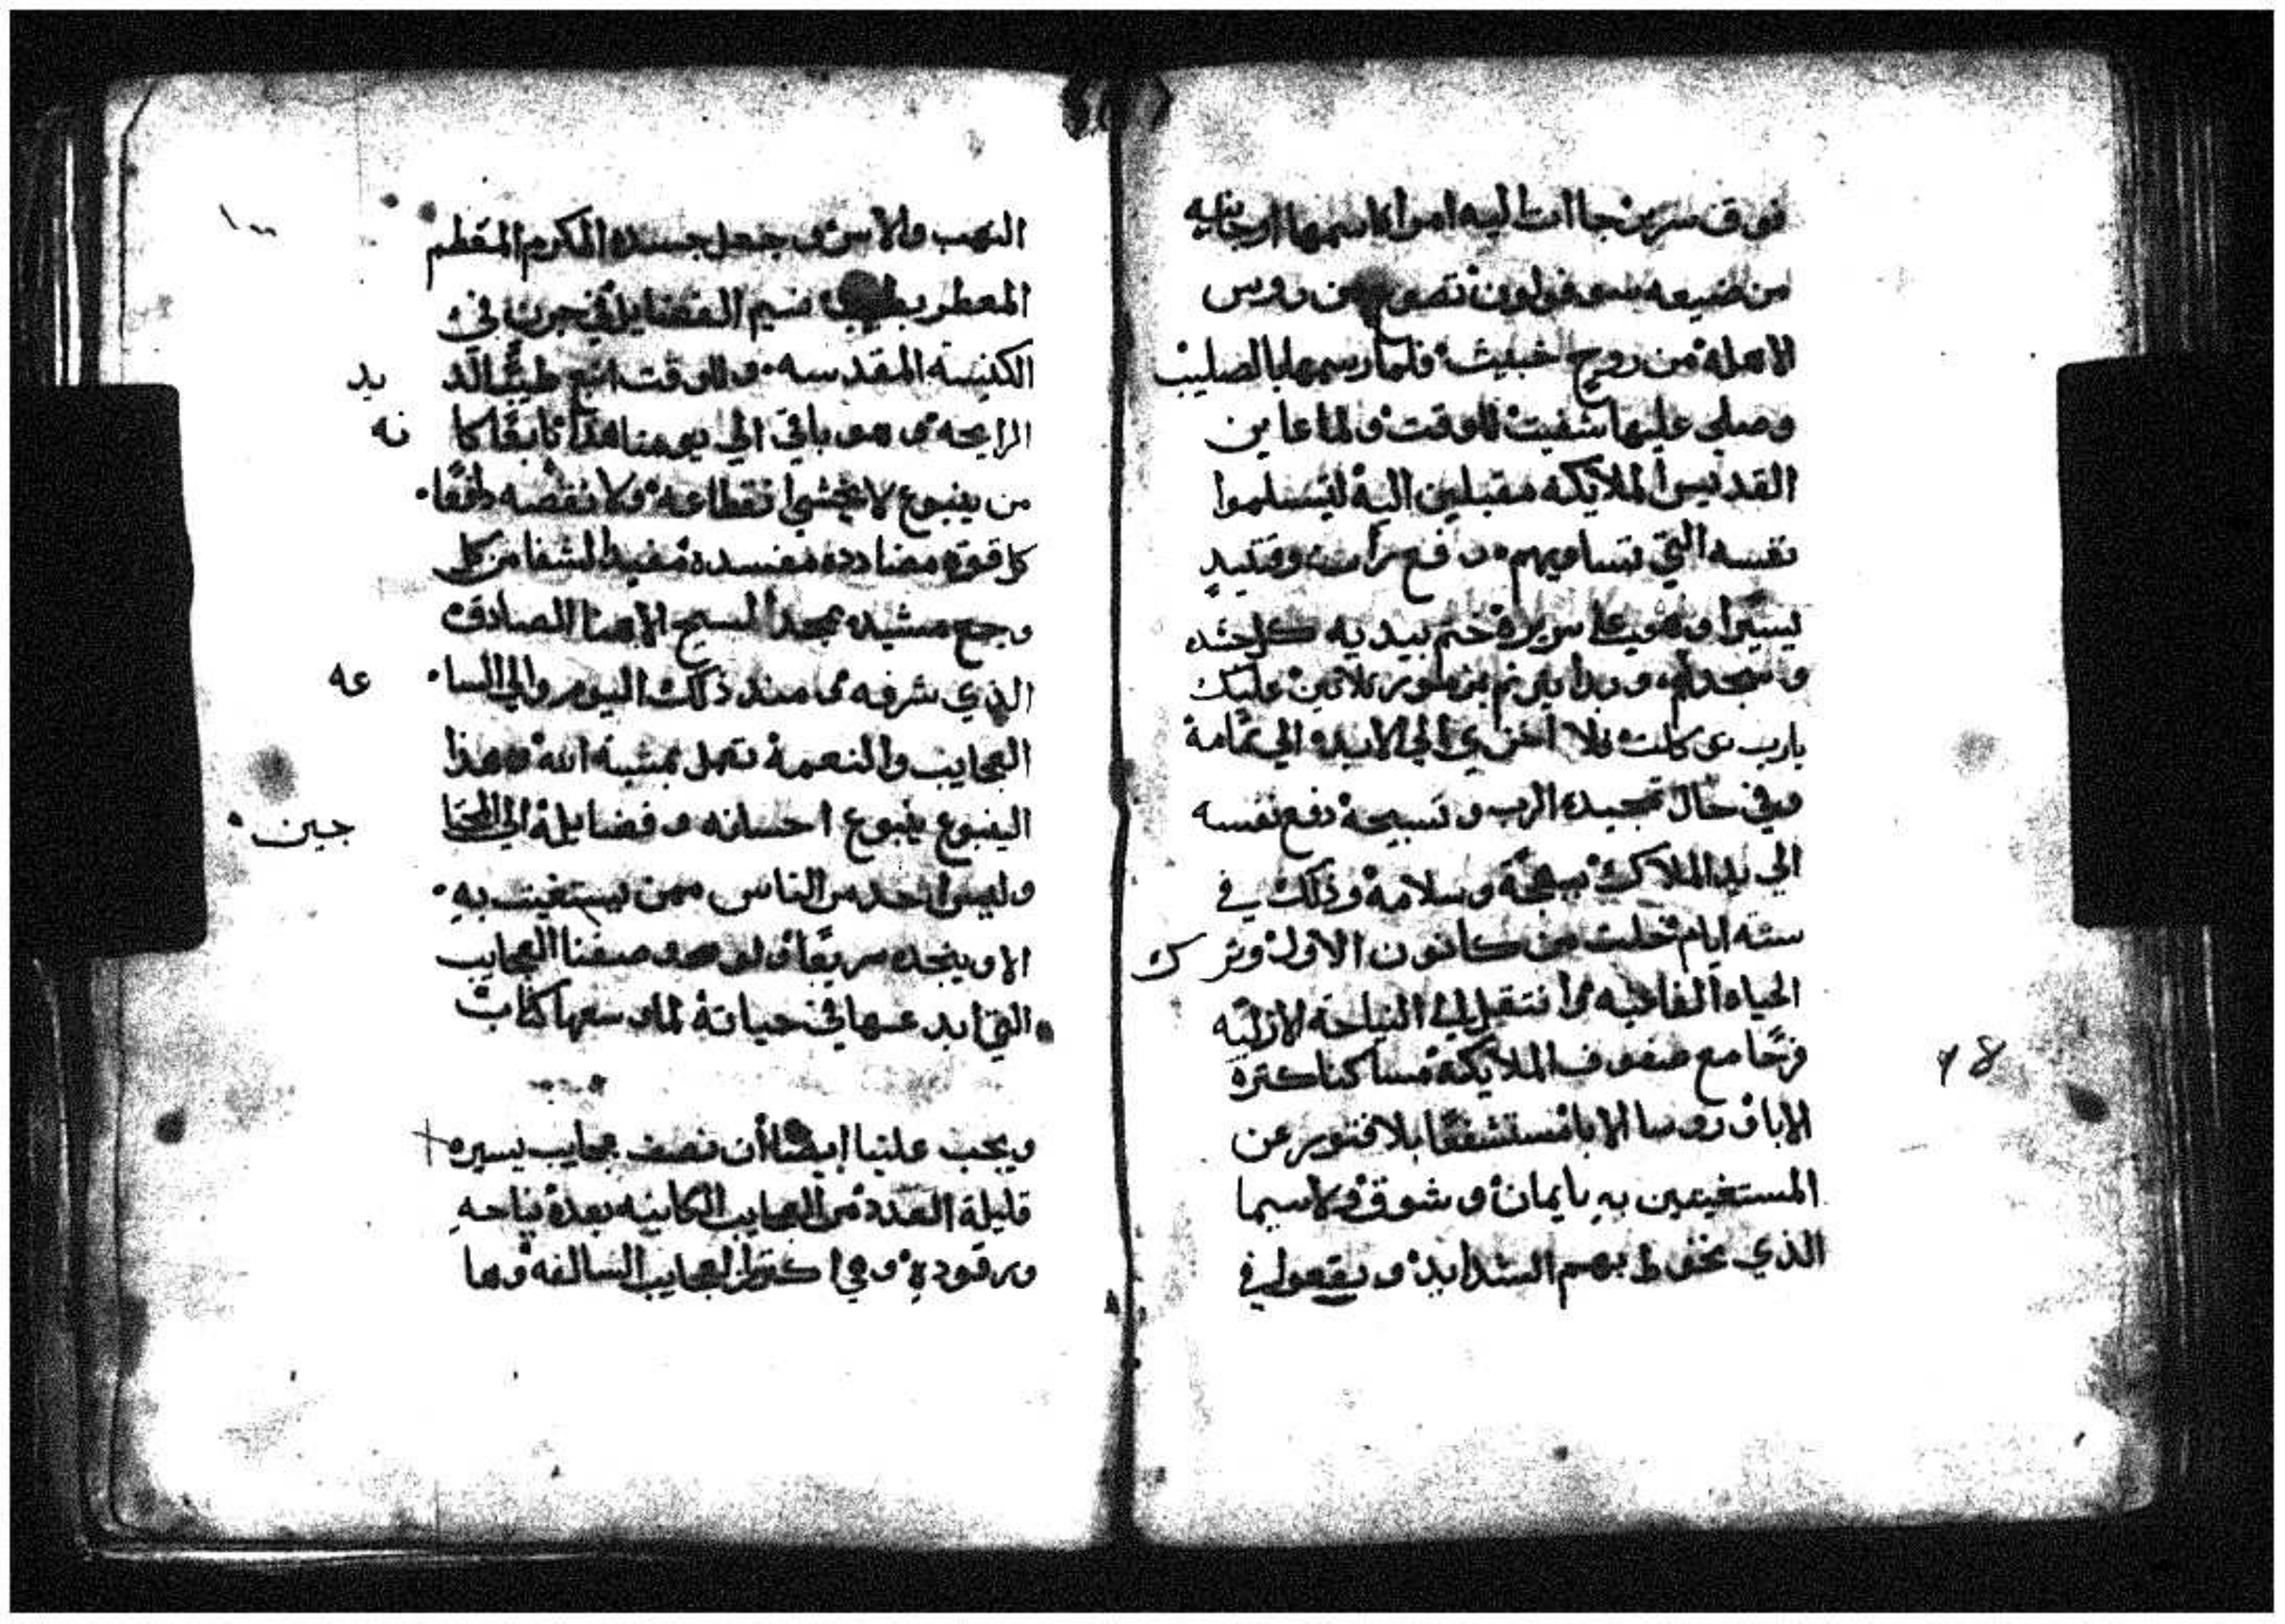 فوق سرير جاات اليه امراة اسمها اوجانيه
من ضيعه
الاهله من روح خبيث فلما رسمها بالصليب
وصلي عليها شفيت للوقت ولما عاين
القديس الملايكه مقبلين اليه ليتسلموا
نفسه التي تساويهم
يسيرا وهو علي سريره ختم بيديه كل جسده
وسجد لله وبدا يترنم بمزمور ثلاثين عليك
يارب توكلت فلا اخزي الي الابد الي تمامه
وفي حال تمجيده الرب وتسبيحه دفع نفسه
الي يد الملاك ببهجه وسلامه وذلك في
سته ايام خلت من كانون الاول وترك
الحياه الفانيه وانتقل الي النياحه الازليه
فرحا مع صفوف الملايكه مساكنا كثرة
الابا وروسا الابا مستشفعا بلا فتور عن
المستغيثين به بايمان وشوق ولا سيما
الذي تحوط بهم الشدايد ويقعوا في
١٠٠
جعل جسده الكرم المعظم
المعطر بطيب نسيم الفضايل في جرن في
الكنيسه المقدسه وللوقت انبع طيبا لذيد
الرايحه وهو باقي الي يومنا هذا نابعا كانه
من ينبوع لا يخشي انقطاعه ولا نقصه دافعا
كل قوة مضادده مفسده مفيدا لشفا من كل
وجع مشيده بمجد المسيح الاهنا الصادق
الذي شرفه منذ ذلك اليوم والي الساعه
العجايب والنعمه تعمل بمشية الله وهذا
الينبوع ينبوع احسانه وفضايله الي المحتاجين
وليس احد من الناس ممن يستغيث به
الا وينجده سريعا ولو وصفنا العجايب
التي ابدعها في حياته لما وسعها كتاب
ويجب علينا ايضا أن نصف عجايب يسيره
قليلة العدد من العجايب الكاينه بعد نياحه
ورقوده وهي اكثر من العجايب السالفه وها